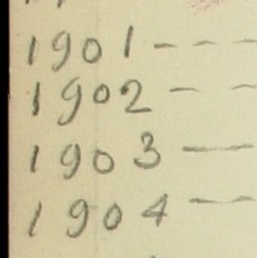 1901 - - -
1902 - -
1903 —
1904 —